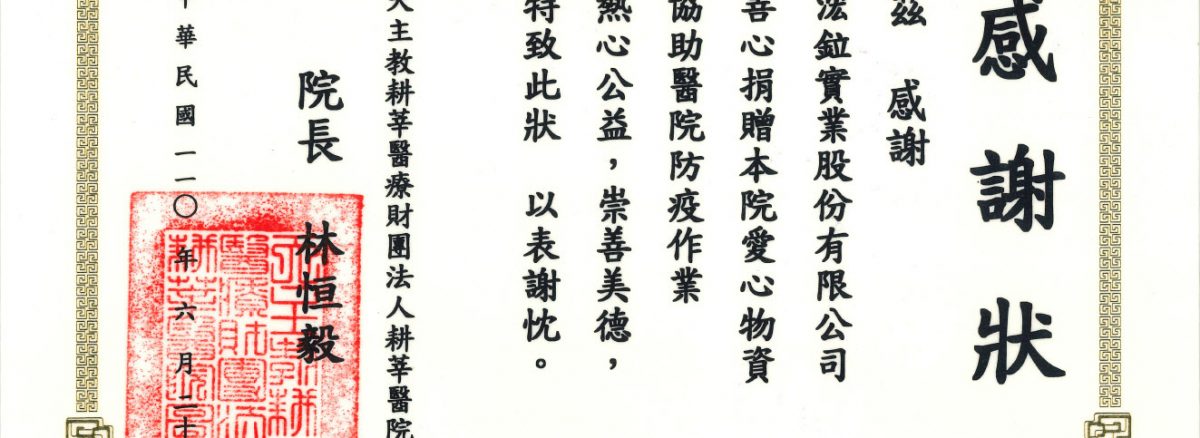 感謝狀
茲 感謝
浤鉝實業股份有限公司
善心捐贈本院愛心物資
協助醫院防疫作業
熱心公益，崇善美德，
特致此狀 以表謝忱。
天主教耕莘醫療財團法人耕莘醫院
院長 林恒毅
華民國一一〇年六月二十